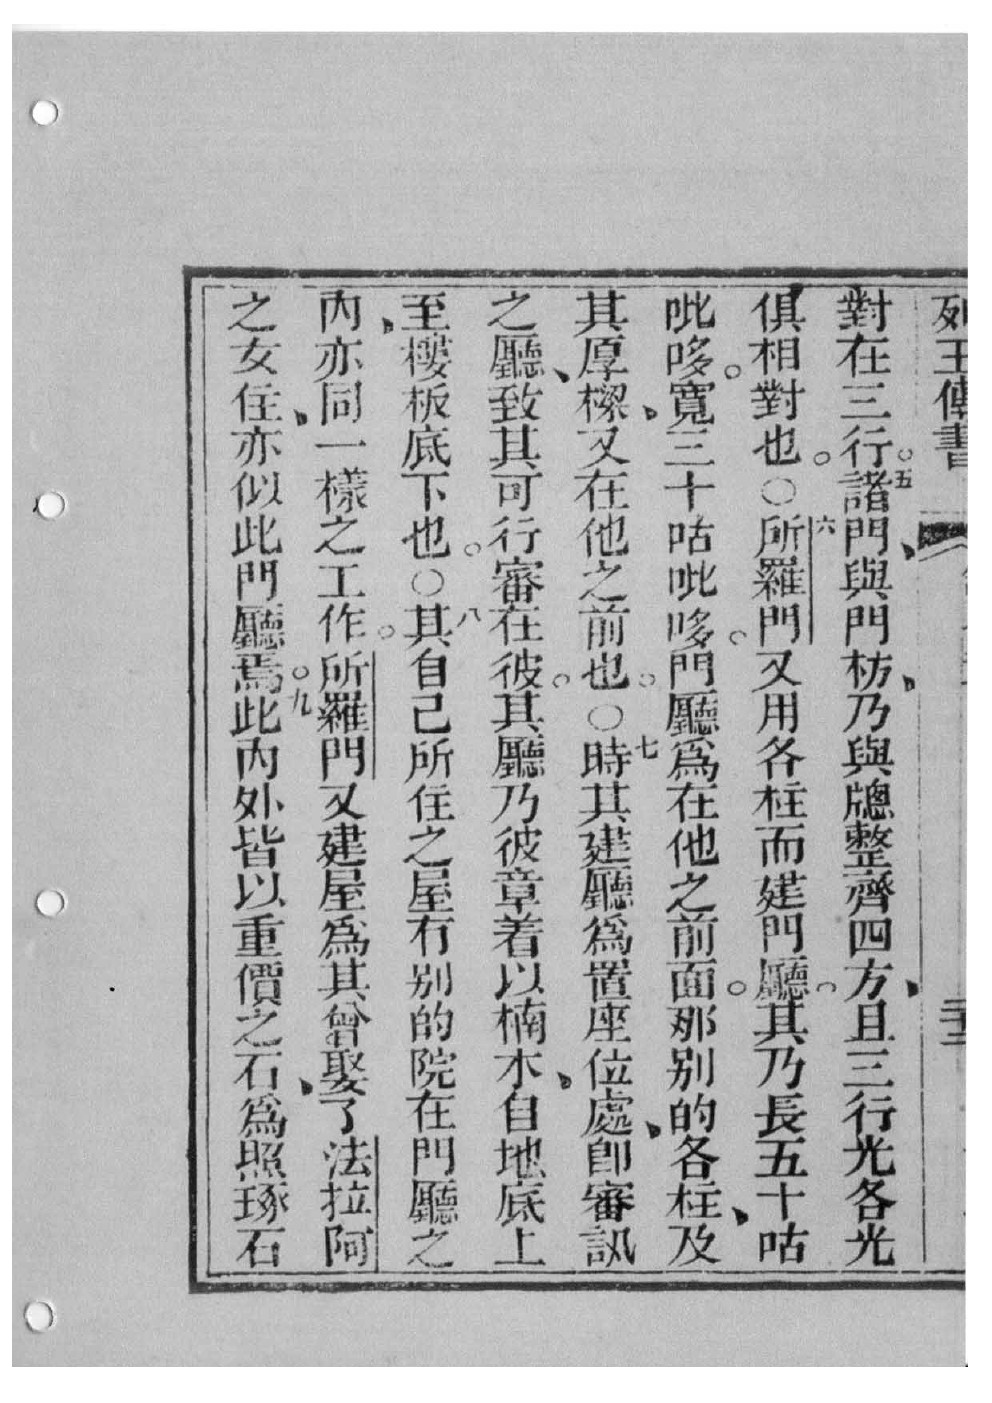 列王傳書
對在三行。五諸門、與門枋、乃與牕整齊四方、且三行光各光
俱相對也。○六所羅門又用各柱而建門廳。其乃長五十咕
吡哆。寬三十咕吡哆。門廳爲在他之前面。那别的各柱、及
其厚樑、又在他之前也。○七時其建廳爲置座位處、卽審訊
之廳、致其可行審在彼。其廳乃彼章着以楠木、自地底上
至樓板底下也。○八其自己所住之屋有别的院在門廳之
內、亦同一樣之工作。所羅門又建屋爲其曾娶了法拉阿
之女住、亦似此門廳焉。九此內外皆以重價之石、爲照琢石